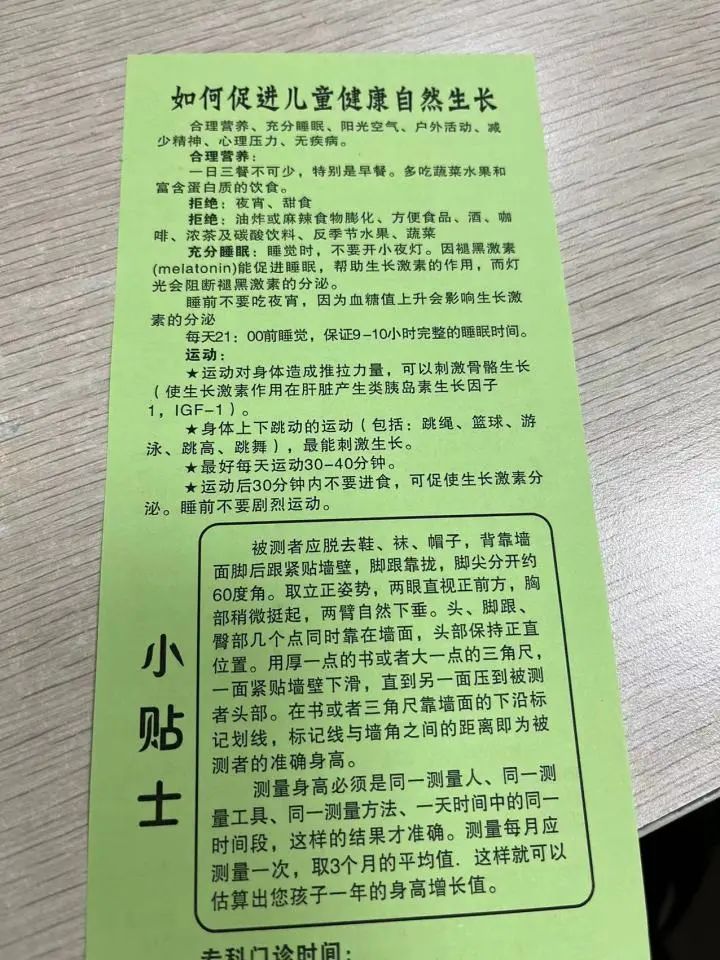 如何促进儿童健康自然生长
合理营养、充分睡眠、阳光空气、户外活动、减
少精神、心理压力、无疾病。
合理营养：
一日三餐不可少，特别是早餐。多吃蔬菜水果和
富含蛋白质的饮食。
拒绝：夜宵、甜食
拒绝：油炸或麻辣食物膨化、方便食品、酒、咖
啡、浓茶及碳酸饮料、反季节水果、蔬菜
充分睡眠：睡觉时，不要开小夜灯。因褪黑激素
(melatonin)能促进睡眠，帮助生长激素的作用，而灯
光会阻断褪黑激素的分泌。
睡前不要吃夜宵，因为血糖值上升会影响生长激
素的分泌
每天21：00前睡觉，保证9-10小时完整的睡眠时间。
运动：
★运动对身体造成推拉力量，可以刺激骨骼生长
（使生长激素作用在肝脏产生类胰岛素生长因子
1，IGF-1）。
★身体上下跳动的运动（包括：跳绳、篮球、游
泳、跳高、跳舞），最能刺激生长。
★最好每天运动30-40分钟。
★运动后30分钟内不要进食，可促使生长激素分
泌。睡前不要剧烈运动。
小贴士
被测者应脱去鞋、袜、帽子，背靠墙
面脚后跟紧贴墙壁，脚跟靠拢，脚尖分开约
60度角。取立正姿势，两眼直视正前方，胸
部稍微挺起，两臂自然下垂。头、脚跟、
臀部几个点同时靠在墙面，头部保持正直
位置。用厚一点的书或者大一点的三角尺，
一面紧贴墙壁下滑，直到另一面压到被测
者头部。在书或者三角尺靠墙面的下沿标
记划线，标记线与墙角之间的距离即为被
测者的准确身高。
测量身高必须是同一测量人、同一测
量工具、同一测量方法、一天时间中的同一
时间段，这样的结果才准确。测量每月应
测量一次，取3个月的平均值．这样就可以
估算出您孩子一年的身高增长值。
专科门诊时间：